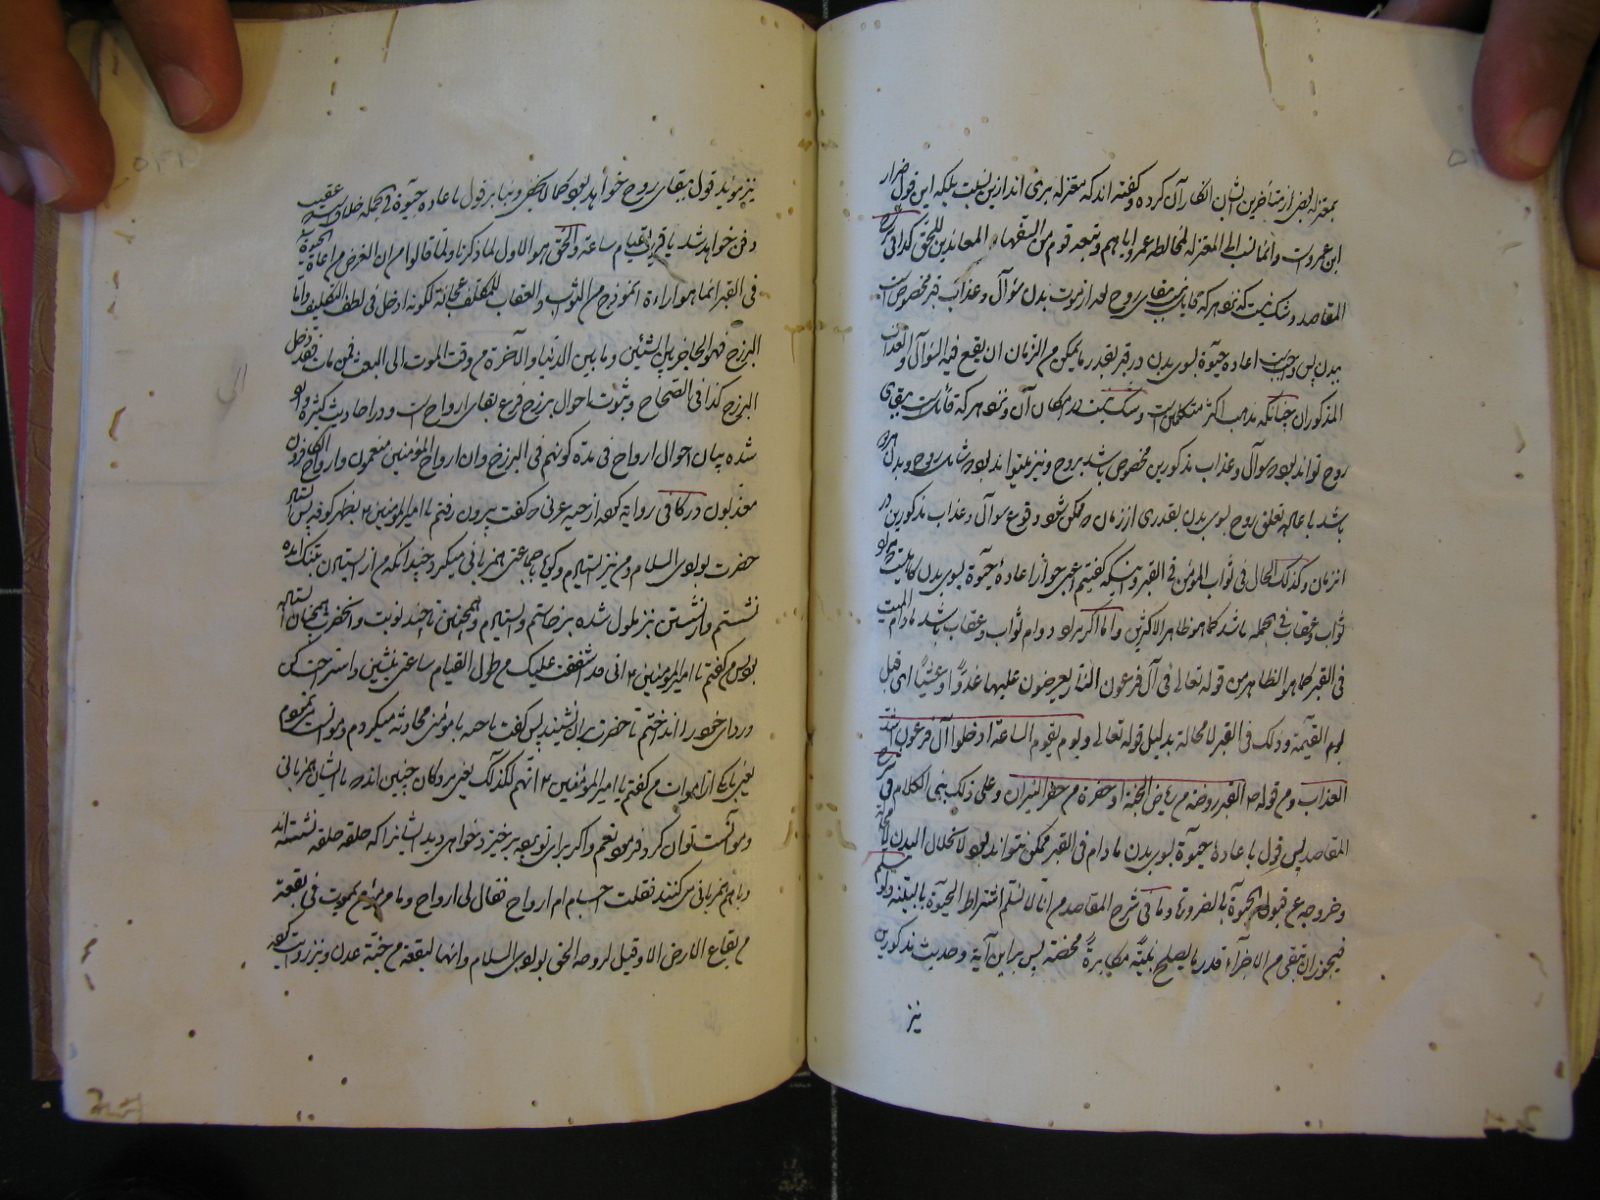 بمعتزله بعضی از متأخرین ایشان انکار آن کرده و گفته اند که معتزله بری اند ازین نسبت بلکه این قول ضرار
ابن عمرو است و انما نسب الی المعتزله لمخالطة عمرو ایاهم و تبعه قوم من السفهاء المعاندین للحق کذا فی شرح
المقاصد و شک نیست که نزد هر که قایل است ببقای روح بعد از موت بدن سؤال و عذاب قبر مخصوص است
ببدن پس واجبست اعاده حیوة بسوی بدن در قبر بقدر ما یمکن من الزمان ان یقع فیه السؤال و العذاب
المذکوران چنانکه مذهب اکثر متکلمین است و شک نیست در امکان آن و نزد هر که قائلست ببقای
روح تواند بود سؤال و عذاب مذکورین مخصوص باشد بروح و نیز میتواند بود شامل روح و بدن هر دو
باشد با عاله تعلق روح بسوی بدن بقدری از زمان که ممکن شود وقوع سوال و عذاب مذکورین در
انزمان و کذلک الحال فی ثواب المؤمن فی القبر و اینکه گفتیم اعنی جواز اعادهٔ حیوة بسوی بدن
ثواب و عقاب فی الجمله باشد کما هو ظاهر الاکثرین و اما اگر مراد دوام ثواب و عقاب باشد مادام المیت
فی القبر کما هو الظاهر من قوله تعالی فی آل فرعون النار یعرضون علیها غدوّا و عشیّا ای قبل
یوم القیمة و ذلک فی القبر لا محالة بدلیل قوله تعالی و یوم یقوم الساعة ادخلوا آل فرعون اشد
العذاب و من قوله ص القبر روضة من ریاض الجنة او حفرة من حفر النیران و علی ذلک بنی الکلام فی شرح
المقاصد پس قول باعادهٔ حیوة بسوی بدن مادام فی القبر ممکن نتواند بود لانحلال البدن لا محالة
و خروجه عن قبول الحیوة بالضرورة و ما فی شرح المقاصد من انا لا نسلم اشتراط الحیوة بالبنیة و لو سلم
فیجوز ان تبقی من الاجزاء قدر ما یصلح بنیة مکابرةٌ محضة پس بر این آیة و حدیث مذکورین
نیز
نیز موید قول ببقای روح خواهد بود کما لا یخفی و بنا بر قول باعاده حیوة فی الجمله عقیب
دفن خواهد شد یا قریب بقیام ساعة و الحق هو الاول لما ذکرنا و لما قالوا من ان الغرض من اعادة الحیوة
فی القبر انما هو اراءة انموذج من الثواب و العقاب للمکلف لکونه ادخل فی لطف التکلیف و اما
البرزخ فهو الحاجز بین الشیئین و ما بین الدنیا و الاخرة من وقت الموت الی البعث فمن مات فقد دخل
البرزخ کذا فی الصحاح و ثبوت احوال برزخ فرع بقای ارواح است و در احادیث کثیره وارد
شده بیان احوال ارواح فی مدة کونهم فی البرزخ و ان ارواح المؤمنین منعمون و ارواح الکافرین
معذبون در کافی روایة کرده از حبه عرنی که گفت بیرون رفتم با امیر المؤمنین ع بظهر کوفه پس ایستاد
حضرت بوادی السلام و من نیز ایستادم و گویا با جماعتی همزبانی میکرد چندانکه من از ایستادن بتنگ آمده
نشستم و از نشستن نیز ملول شده برخاستم و ایستادم و همچنین تا چند نوبت و آنحضرت همچنان ایستاده
بود پس من گفتم یا امیر المؤمنین ع انی قد اشفقت علیک من طول القیام ساعتی بنشین و استراحت کن
و ردای خود را انداختم تا حضرت بران نشیند پس گفت یا حبه با مؤمنی محادثه میکردم و موانست مینمودم
یعنی با یکی از اموات من گفتم یا امیر المؤمنین ع انهم لکذلک یعنی مردگان چنین اند که با ایشان همزبانی
و موآنست توان کرد فرمود نعم و اگر برای تو پرده برخیزد خواهی دید ایشانرا که حلقه حلقه نشسته اند
و با هم همزبانی می کنند فقلت اجسام ام ارواح فقال لی ارواح و ما من مؤمن یموت فی بقعة
من بقاع الارض الا و قیل لروحه الحق بوادی السلام و انها لبقعة من جنة عدن و نیز روایت کرده